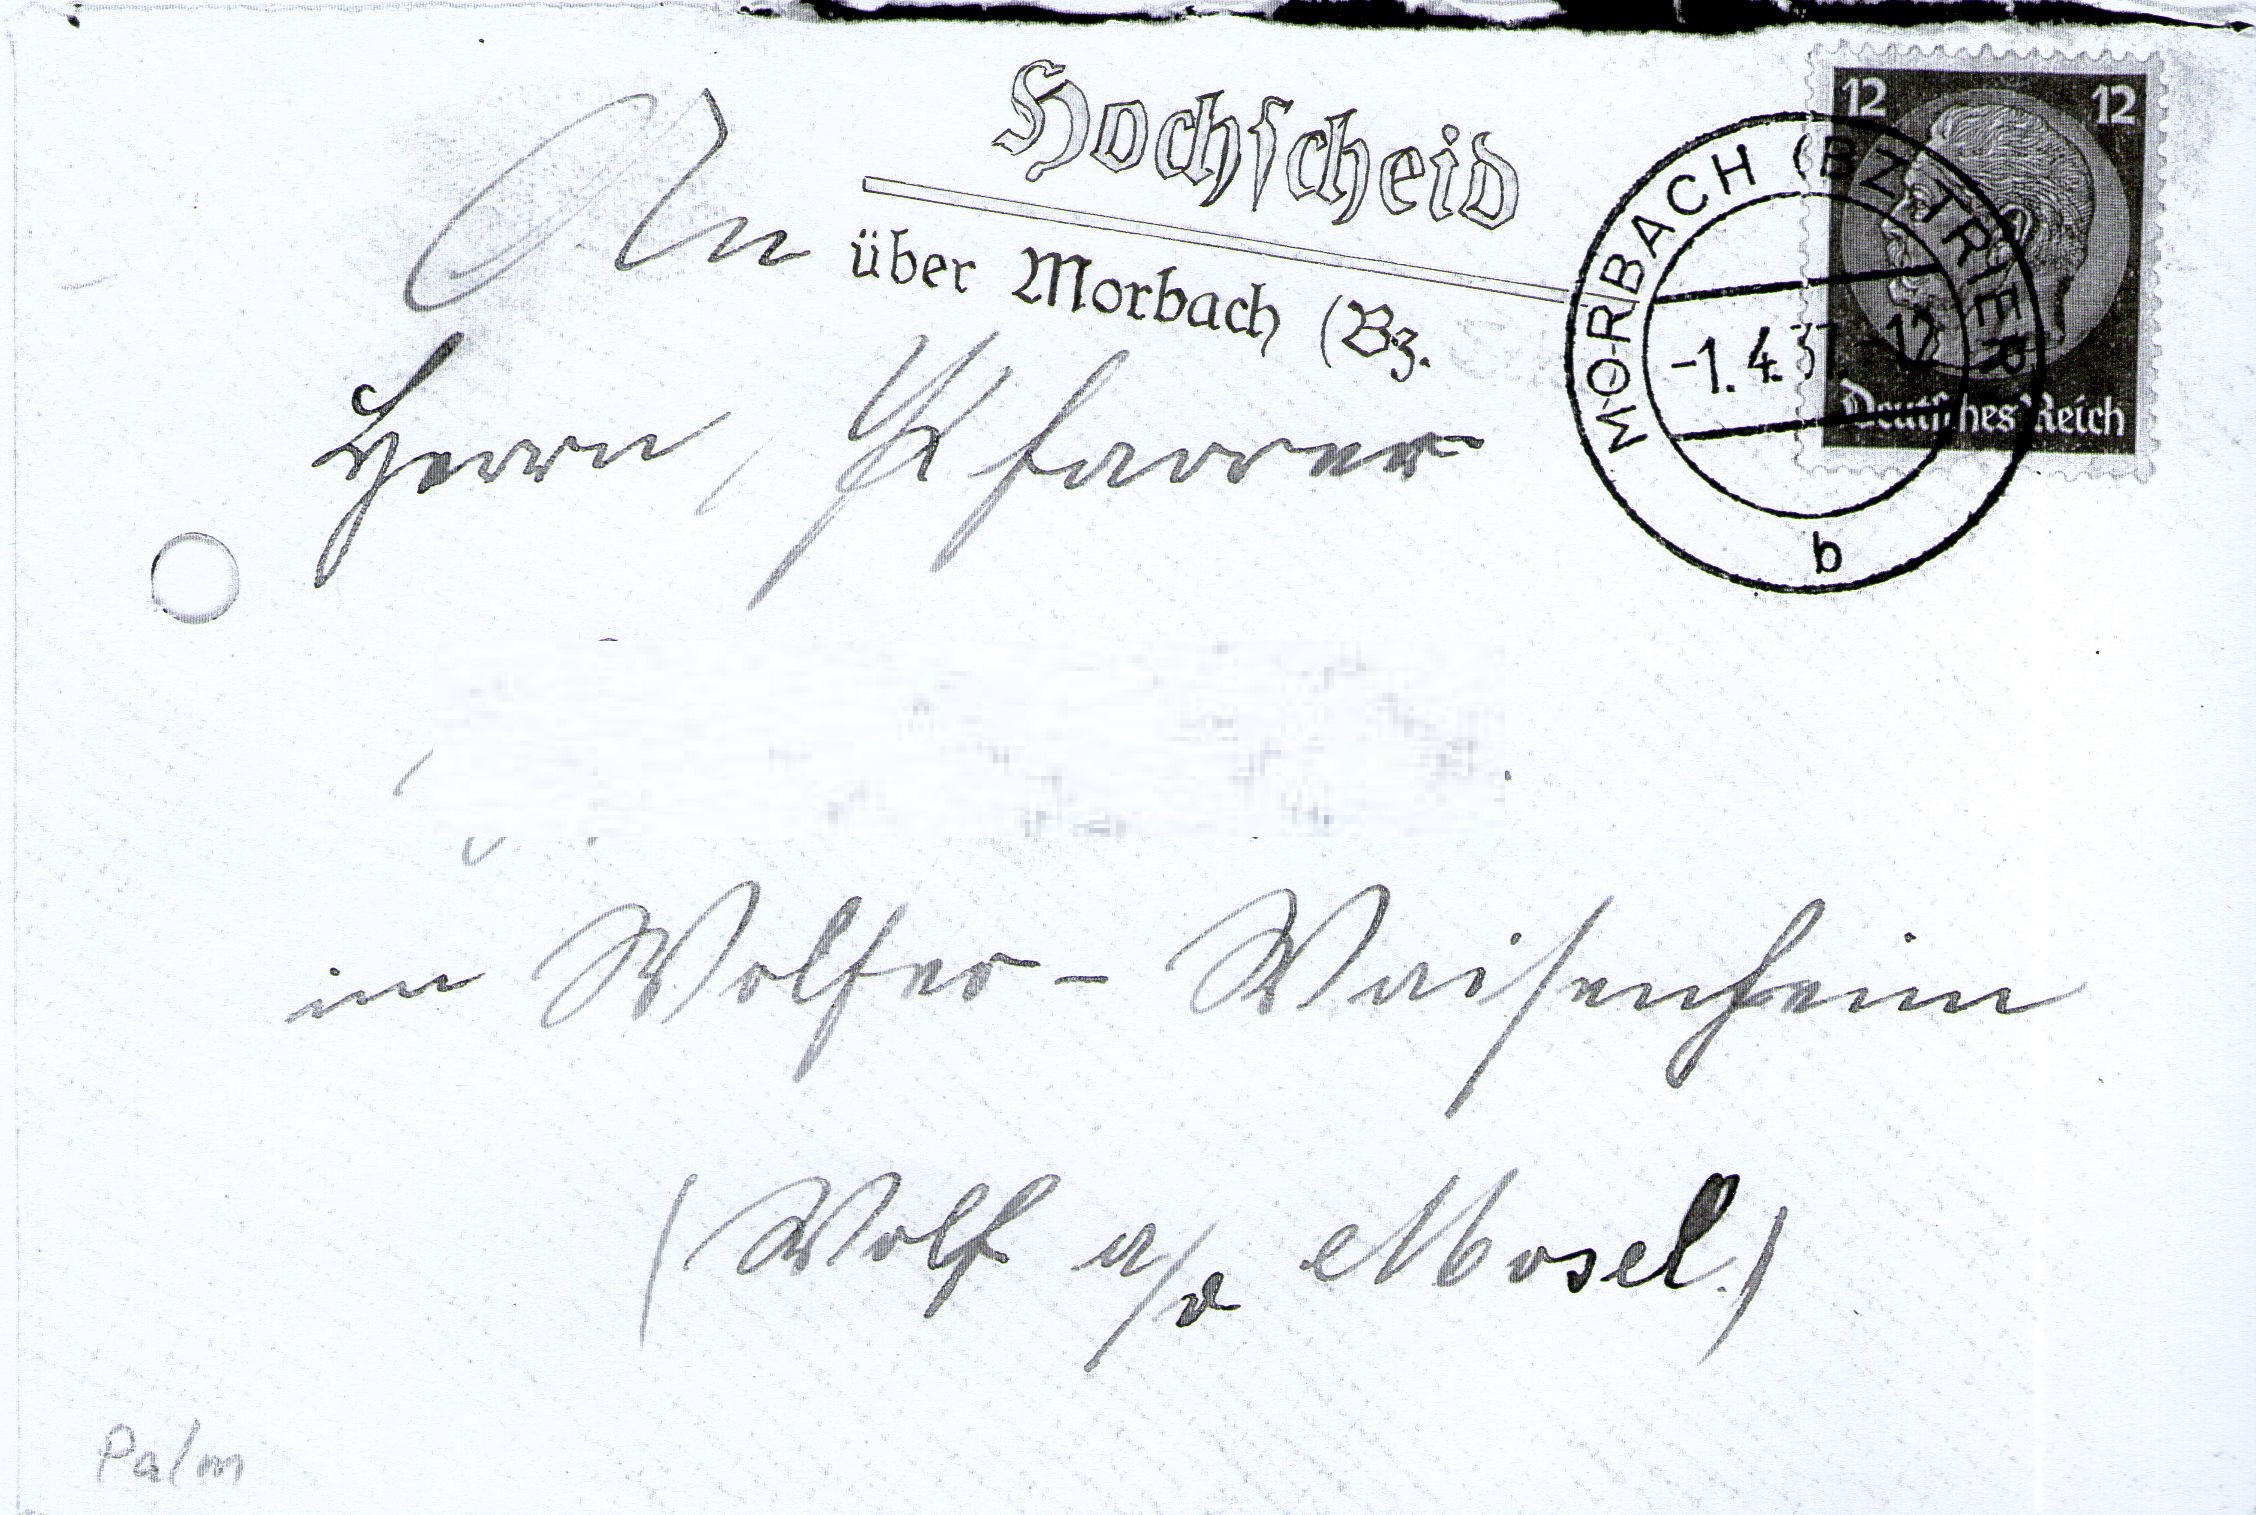 An
Hochscheid
über Morbach (Bz.
12 12
MORBACH (BZ TRIER
-1.4.37.-12
b
Deutsches Reich
Herrn, Pfarrer
im Wolfer-Waisenheim
(Wolf a/d Mosel.)
Palm